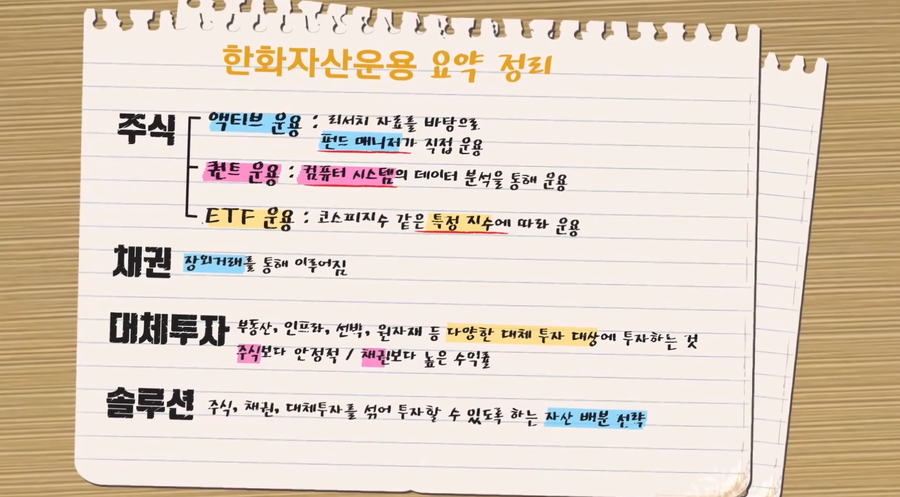 한화자산운용 요약 정리
주식
액티브 운용 : 리서치 자료를 바탕으로
펀드 매니저가 직접 운용
퀀트 운용 : 컴퓨터 시스템의 데이터 분석을 통해 운용
ETF 운용 : 코스피지수 같은 특정 지수에 따라 운용
채권 장외거래를 통해 이루어짐
대체투자 부동산, 인프라, 선박, 원자재 등 다양한 대체 투자 대상에 투자하는 것
주식보다 안정적 / 채권보다 높은 수익률
솔루션 주식, 채권, 대체투자를 섞어 투자할 수 있도록 하는 자산 배분 전략